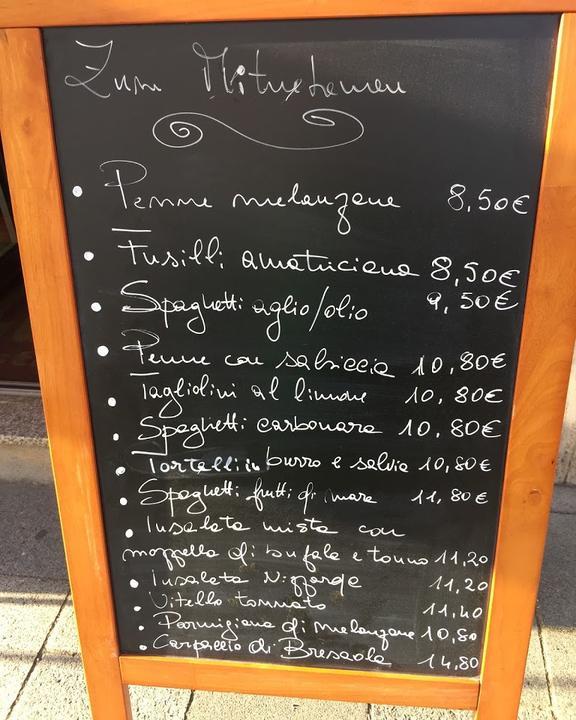 Zum Mitnehmen
• Penne melanzane 8,50€
• Fusilli amatriciana 8,50€
• Spaghetti aglio/olio 9,50€
• Penne con salsiccia 10,80€
• Tagliolini al limone 10,80€
• Spaghetti carbonara 10,80€
• Tortellini burro e salvia 10,80€
• Spaghetti frutti di mare 11,80€
• Insalata mista con
mozzella di bufala e tonno 11,20
• Insalata Nizzarda 11,20
• Vitello tonnato 11,40
• Parmigiana di melanzane 10,80
• Carpaccio di Bresaola 14,80